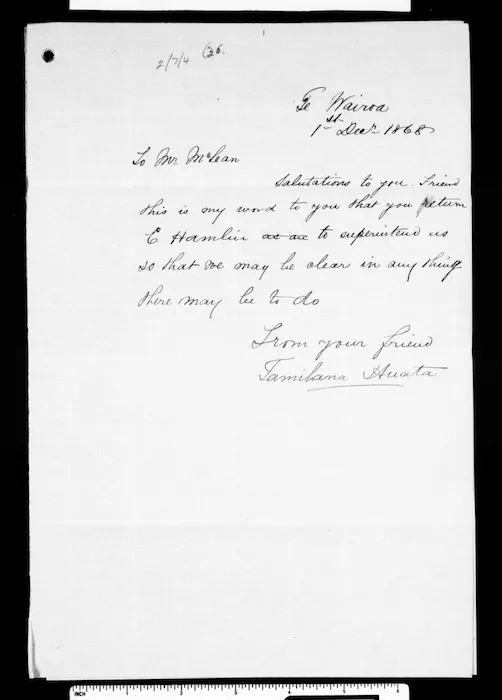 2/7/4 (36.
Te Wairoa
1st Decr 1868
To Mr McLean
Salutations to you. Friend
this is my word to you that you return
E Hamlin as an to superintend us
so that we may be clear in any thing
there may be to do
From your friend
Tamihana Huata
INCH 1 2 3 4